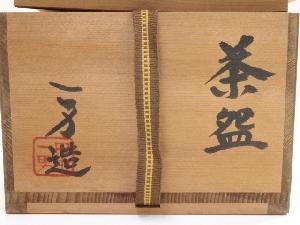 茶盌
一方造